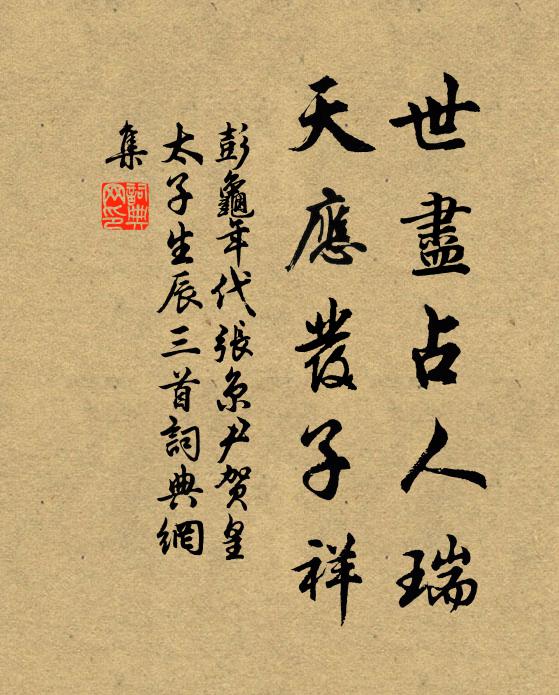 世盡占人瑞
天應發子祥
彭龜年代張京尹賀皇
太子生辰三首詞典網
集
詞典
网印